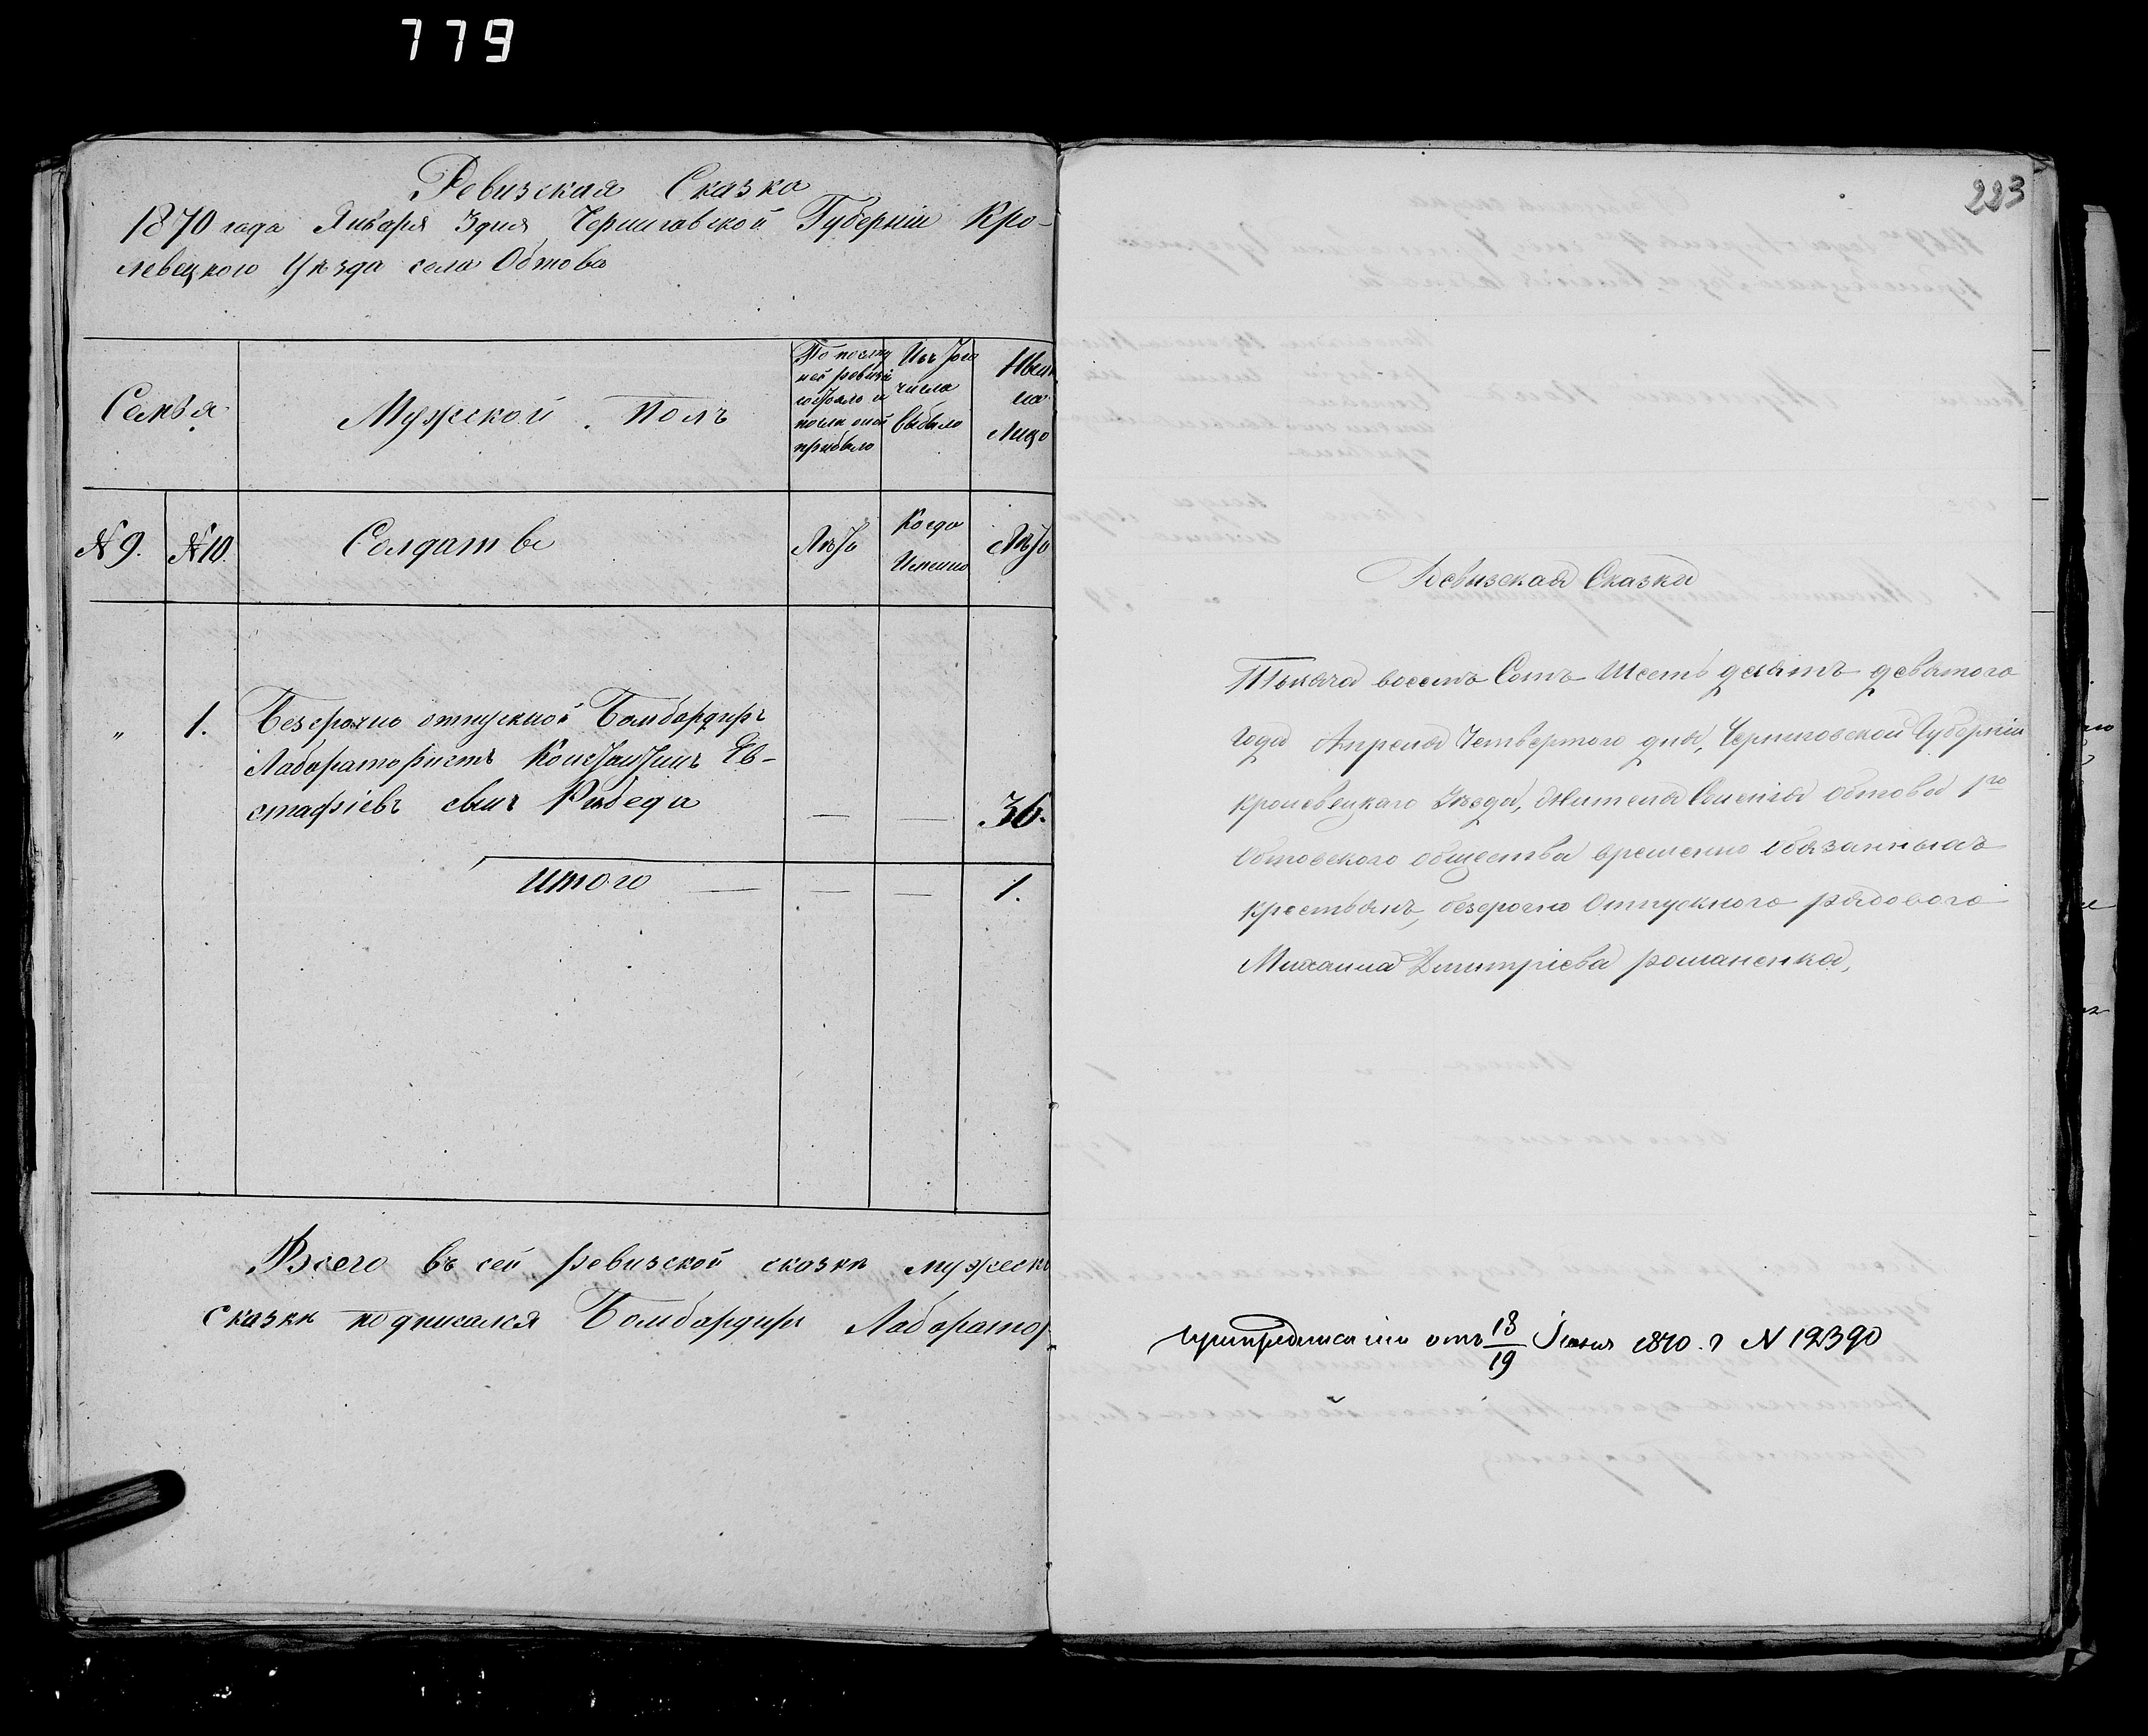 779
Ревизская Сказка
1870 года Января 3 дня Черниговской Губерніи Кро-
левецкого Уѣзда села Обтова
Семья
Мужской полъ
По послѣд
ней ревизіи
состояло и
послѣ оной
прибыло
Изъ того
числа
выбыло
Нынѣ
на
Лицо
№ 9.
№ 10.
Солдатъ
Лѣта
Когда
Именно
Лѣта
„ 1. Безсрочно отпускной Бомбардиръ
Лаборатористъ Константинъ Ев-
стафіевъ сынъ Рибеда
— — 36.
Итого — — — 1.
Всего въ сей ревизской сказкѣ мужеск
сказкѣ подписался Бомбардиръ Лаборатор
223
Ревизская Сказка
Тысяча восемь Сотъ Шесть десятъ девятого
Года Апреля Четвертого дня, Черниговской Губерніи
Кролевецкаго Уезда, Жителя Селенія Обтова 1го
Обтовского общества временно обязанныхъ
крестьянъ, безсрочно Отпускного рядового
Михаила Дмитріева романенка,
при предписаніи отъ 18/19 Іюня 1870. г N 12390